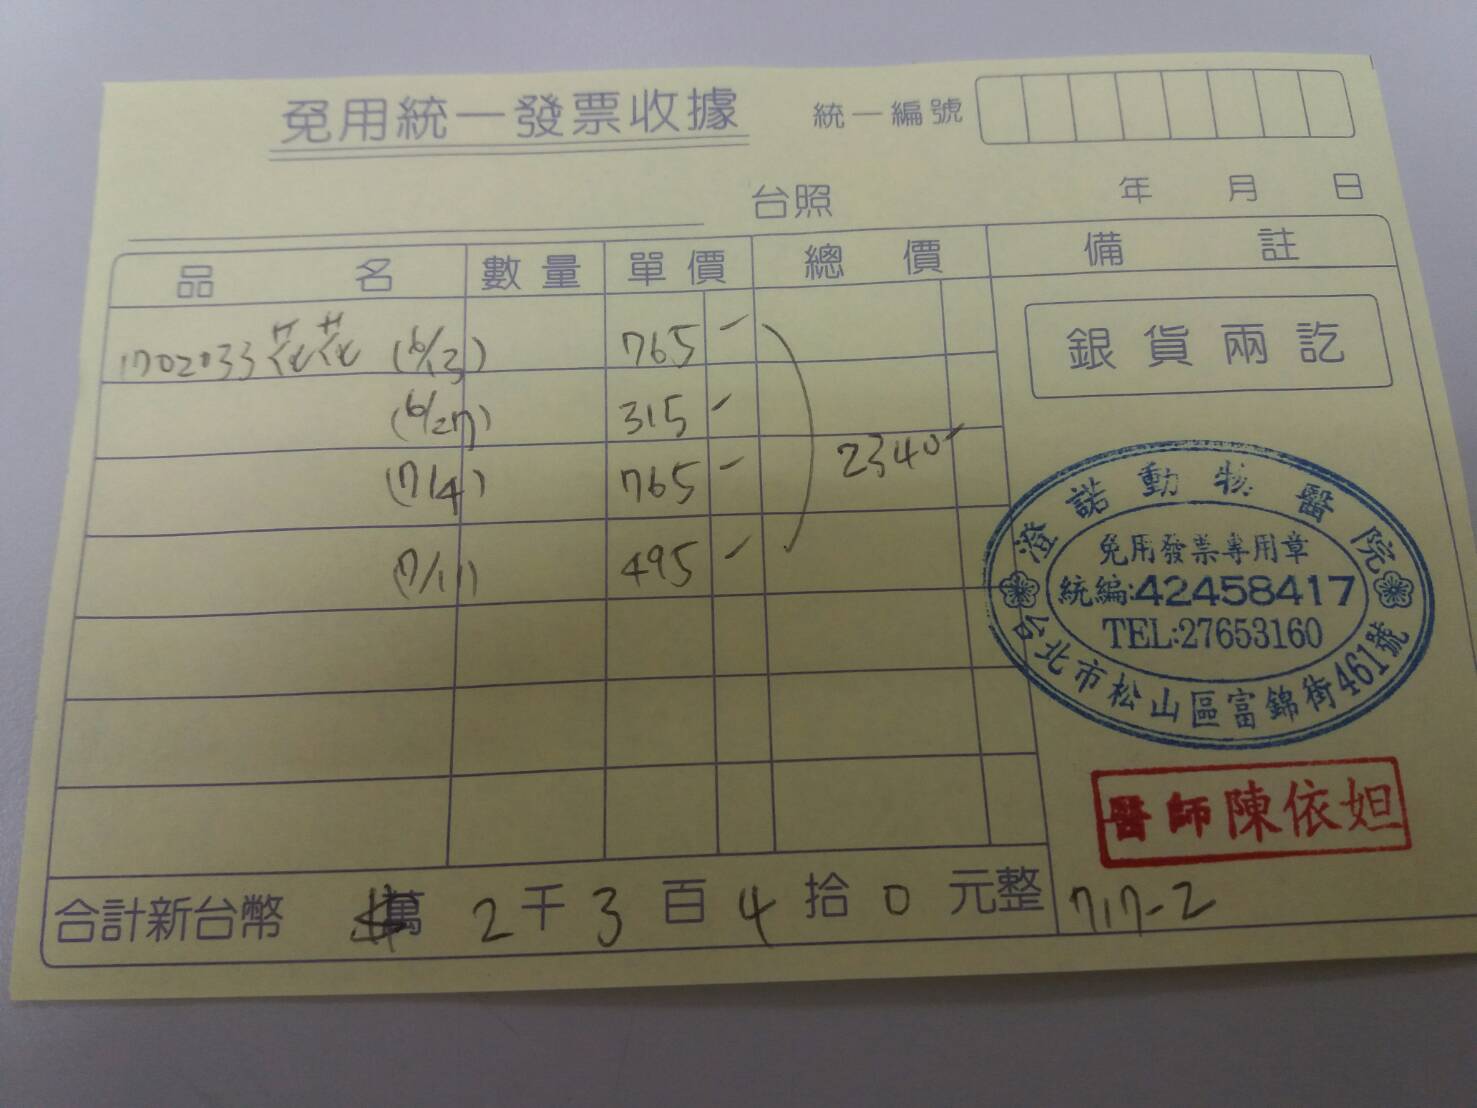 免用統一發票收據 統一編號
台照 年 月 日
品名 數量 單價 總價 備註
1702033花花 (6/13) 765-
(6/27) 315-
(7/4) 765-
(7/11) 495-
2340-
銀貨兩訖
澄諾動物醫院
免用發票專用章
統編:42458417
TEL:27653160
台北市松山區富錦街461號
醫師陳依妲
合計新台幣 萬 2千3百4拾0元整
717-2